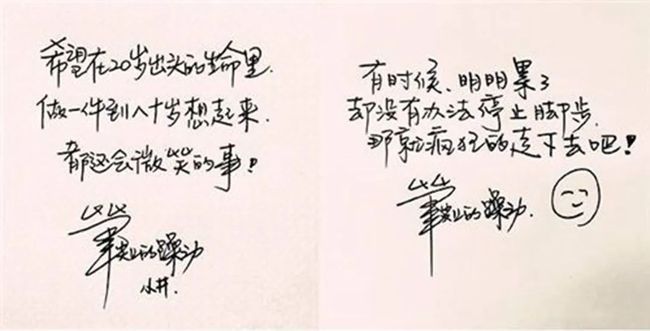 希望在20岁出头的生命里.
做一件到八十岁想起来.
都还会微笑的事!
毕业的躁动
小井.
有时候,明明累了
却没有办法停止脚步.
那就疯狂的走下去吧!
毕业的躁动.